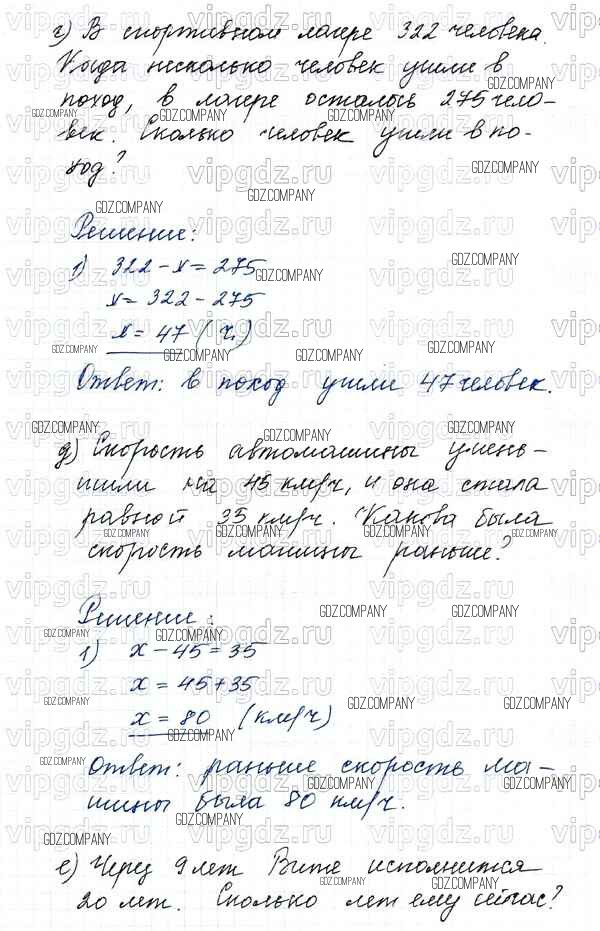 г) В спортивном лагере 322 человека.
Когда несколько человек ушли в
поход, в лагере осталось 275 чело-
век. Сколько человек ушли в по-
ход?
Решение:
1) 322 - x = 275
x = 322 - 275
x = 47 (ч.)
Ответ: в поход ушли 47 человек.
д) Скорость автомашины умень-
шили на 45 км/ч, и она стала
равной 35 км/ч. Какова была
скорость машины раньше?
Решение:
1) x - 45 = 35
x = 45 + 35
x = 80 (км/ч)
Ответ: раньше скорость ма-
шины была 80 км/ч.
е) Через 9 лет Вите исполнится
20 лет. Сколько лет ему сейчас?
vipgdz.ru
GDZ.COMPANY